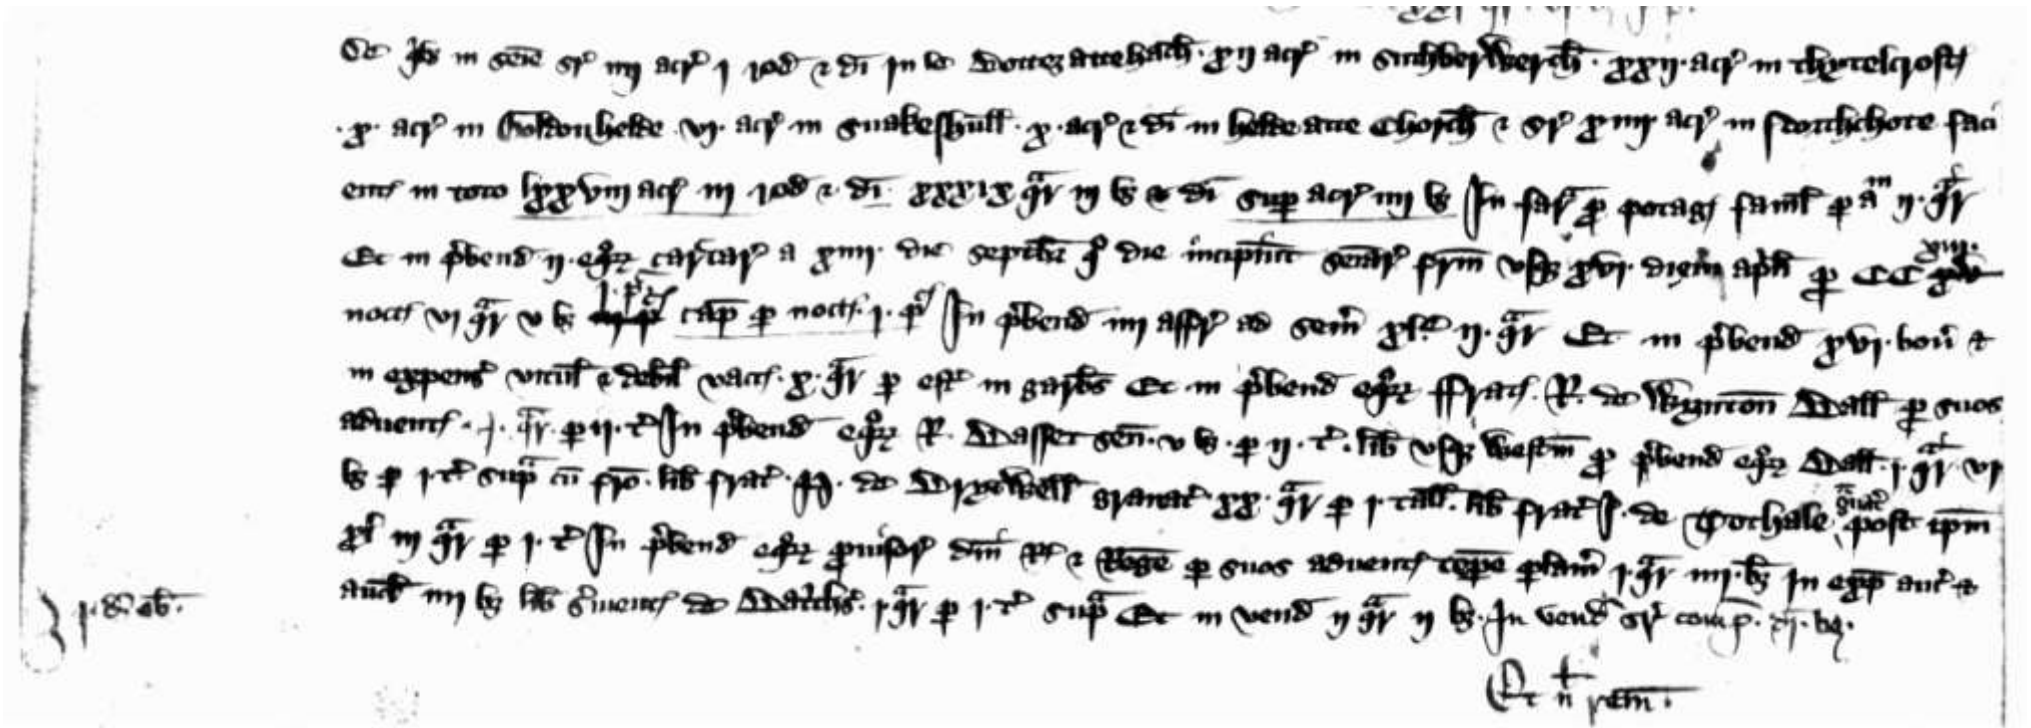 De qibus in seme sr iiij acr j rod & di in le Dottez attehach. xij acr in suthberwerch. xxij. acr in thyxtelcroft
.x. acr in Goldonhelde .vj. acr in snakeshull. x. acr & di in helde atte Chorch & sr xiiij acr in stotthchote faci
ent in toto lxxviij acr iij rod & di. xxxix qar iij bz & di sup acr iiij bz In far p potag faml p am ij. qar
Et in pbend ij. eqor cartar a xiiij. die septembr qo die incipiunt semar frm usqz xvj. diem apl p CC xviij.
noct vj qar v bz j. pc cap p noct. j. pc In pbend iiij affr ad sem xl. ij. qar Et in pbend xvj. bou &
in expens vitul & debil vacc. x. qar p est in garbs Et in pbend eqor ffratr. R. de Wynton Ball p suos
advent. j. qar. p ij. t In pbend eqor R. Basset sen. v bz. p ij. t. lib usqz Westm p pbend eqor Ball. j. qar vj
bz p j. t sup cu fro. lib fratr. H. de Bryxwell granat. xx. qar p j. tall. lib fratr J. de Cochale gnat post ipm
xl iij qar p j. t In pbend eqor provisor dni R & Regine p suos advent tepe ptam j. qar iiij. bz In exp auc &
aucl iiij bz lib svient de Batchs. j qar p j. t sup Et in vend ij qar ij bz. In vend sr comp. ij. bz.
Et n rem.